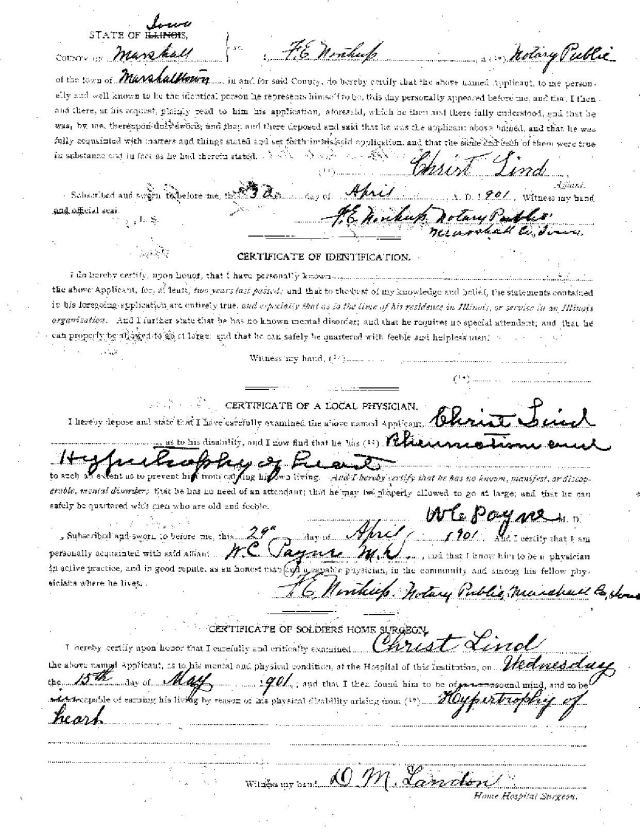 Iowa
STATE OF ILLINOIS,
COUNTY OF Marshall ss. I, F. E. Northup a (10) Notary Public
of the town of Marshalltown in and for said County, do hereby certify that the above named Applicant, to me person-
ally and well known to be the identical person he represents himself to be, this day personally appeared before me, and that I then
and there, at his request, plainly read to him his application, aforesaid, which he then and there fully understood, and that he
was, by me, thereupon duly sworn, and that, and there deposed and said that he was the applicant above named, and that he was
fully acquainted with matters and things stated and set forth in his said application, and that the same and each of them were true
in substance and in fact as he had therein stated.
Christ Lind
Affiant.
Subscribed and sworn to before me, this 3d day of April A. D. 1901. Witness my hand
and official seal
L. S.
F. E. Northup Notary Public
Marshall Co, Iowa
CERTIFICATE OF IDENTIFICATION.
I do hereby certify, upon honor, that I have personally known
the above Applicant, for, at least, two years last passed; and that to the best of my knowledge and belief, the statements contained
in his foregoing application are entirely true, and especially that as to the time of his residence in Illinois, or service in an Illinois
organization. And I further state that he has no known mental disorder; and that he requires no special attendant; and that he
can properly be allowed to go at large; and that he can safely be quartered with feeble and helpless men.
Witness my hand,
CERTIFICATE OF A LOCAL PHYSICIAN.
I hereby depose and state that I have carefully examined the above named Applicant, Christ Lind
as to his disability, and I now find that he has Rheumatism and
Hypertrophy of heart
to such an extent as to prevent him from earning his own living. And I hereby certify that he has no known, manifest, or discov-
erable, mental disorder; that he has no need of an attendant; that he may be properly allowed to go at large; and that he can
safely be quartered with men who are old and feeble.
W C Payne M. D.
Subscribed and sworn to before me, this 29th day of April 1901. And I certify that I am
personally acquainted with said affiant W. C. Payne M.D. and that I know him to be a physician
in active practice, and in good repute, as an honest man and a capable physician, in the community and among his fellow phy-
sicians where he lives. F. E. Northup Notary Public, Marshall Co, Iowa
CERTIFICATE OF SOLDIERS HOME SURGEON.
I hereby certify upon honor that I carefully and critically examined Christ Lind
the above named Applicant, as to his mental and physical condition, at the Hospital of this Institution, on Wednesday
the 15th day of May 1901; and that I then found him to be of sound mind, and to be
incapable of earning his living by reason of his physical disability arising from Hypertrophy of
heart
Witness my hand D M. Landon
Home Hospital Surgeon.